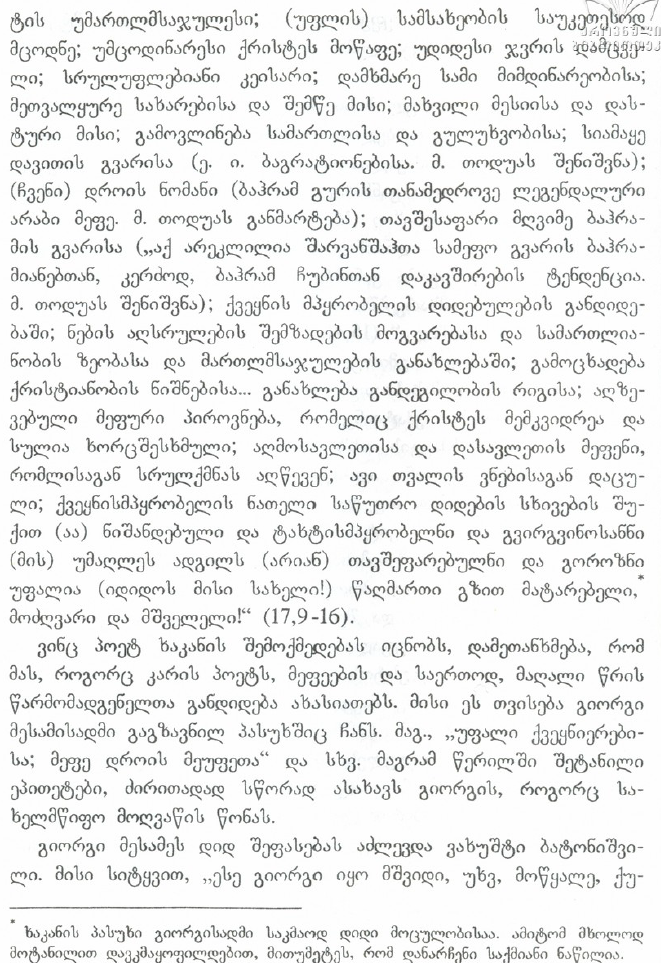 ტის უმართლმსაჯულესი; (უფლის) სამსახეობის საუკეთესოდ
მცოდნე; უმცოდინარესი ქრისტეს მოწაფე; უდიდესი ჯვრის დამცვე-
ლი; სრულუფლებიანი კეისარი; დამხმარე სამი მიმდინარეობისა;
მეთვალყურე სახარებისა და შემწე მისი; მახვილი მესიისა და დას-
ტური მისი; გამოვლინება სამართლისა და გულუხვობისა; სიამაყე
დავითის გვარისა (ე. ი. ბაგრატიონებისა. მ. თოდუას შენიშვნა);
(ჩვენი) დროის ნომანი (ბაჰრამ გურის თანამედროვე ლეგენდალური
არაბი მეფე. მ. თოდუას განმარტება); თავშესაფარი მღვიმე ბაჰრა-
მის გვარისა („აქ არეკლილია შარვანშაჰთა სამეფო გვარის ბაჰრა-
მიანებთან, კერძოდ, ბაჰრამ ჩუბინთან დაკავშირების ტენდენცია.
მ. თოდუას შენიშვნა); ქვეყნის მპყრობელის დიდებულების განდიდე-
ბაში; ნების აღსრულების შემზადების მოგვარებასა და სამართლია-
ნობის ზეობასა და მართლმსაჯულების განახლებაში; გამოცხადება
ქრისტიანობის ნიშნებისა... განახლება განდეგილობის რიგისა; აღზე-
ვებული მეფური პიროვნება, რომელიც ქრისტეს მემკვიდრეა და
სულია ხორცშესხმული; აღმოსავლეთისა და დასავლეთის მეფენი,
რომლისაგან სრულქმნას აღწევენ; ავი თვალის ვნებისაგან დაცუ-
ლი; ქვეყნისმპყრობელის ნათელი საწუთრო დიდების სხივების შუ-
ქით (აა) ნიშანდებული და ტახტისმპყრობელნი და გვირგვინოსანნი
(მის) უმაღლეს ადგილს (არიან) თავშეფარებულნი და გოროზნი
უფალია (იდიდოს მისი სახელი!) წაღმართი გზით მატარებელი,*
მოძღვარი და მშველელი!“ (17,9-16).
ვინც პოეტ ხაკანის შემოქმედებას იცნობს, დამეთანხმება, რომ
მას, როგორც კარის პოეტს, მეფეების და საერთოდ, მაღალი წრის
წარმომადგენელთა განდიდება ახასიათებს. მისი ეს თვისება გიორგი
მესამისადმი გაგზავნილ პასუხშიც ჩანს. მაგ., „უფალი ქვეყნიერები-
სა; მეფე დროის მეუფეთა“ და სხვ. მაგრამ წერილში შეტანილი
ეპითეტები, ძირითადად სწორად ასახავს გიორგის, როგორც სა-
ხელმწიფო მოღვაწის წონას.
გიორგი მესამეს დიდ შეფასებას აძლევდა ვახუშტი ბატონიშვი-
ლი. მისი სიტყვით, „ესე გიორგი იყო მშვიდი, უხვ, მოწყალე, ქუ-
* ხაკანის პასუხი გიორგისადმი საკმაოდ დიდი მოცულობისაა. ამიტომ მხოლოდ
მოტანილით დავკმაყოფილდებით, მითუმეტეს, რომ დანარჩენი საქმიანი ნაწილია.